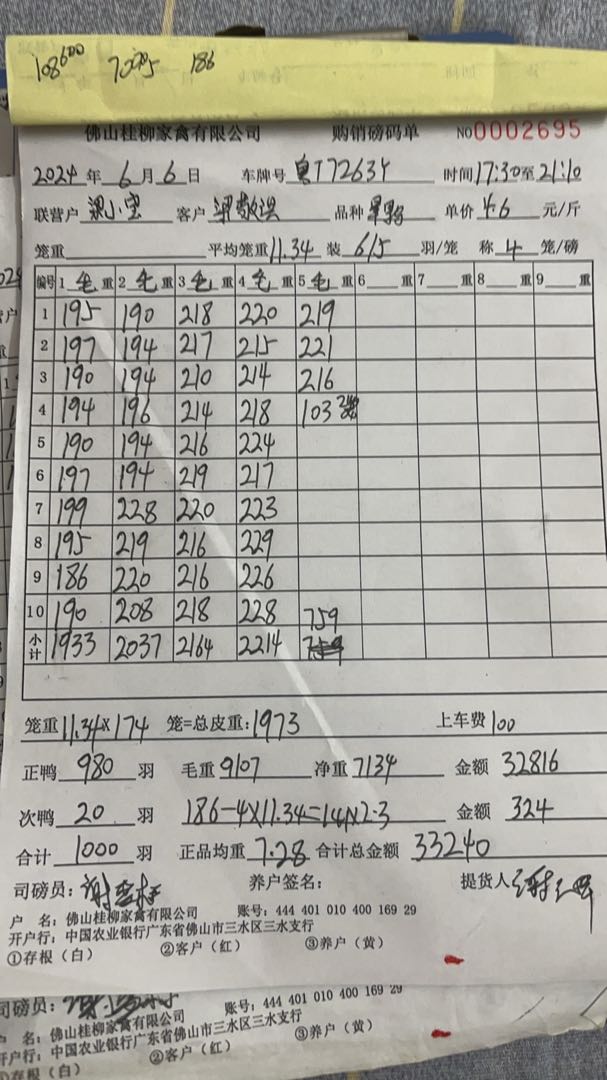 108600 7005 186
佛山桂柳家禽有限公司 购销磅码单 NO 0002695
2024年6月6日 车牌号 粤T72634 时间17:30至21:10
联营户 梁小宝 客户 品种 单价 4.6 元/斤
笼重 平均笼重11.34 装 6/5 羽/笼 称 4 笼/磅
编号 1 毛 重 2 毛 重 3 毛 重 4 毛 重 5 毛 重 6 重 7 重 8 重 9 重
1 195 190 218 220 219
2 197 194 217 215 221
3 190 194 210 214 216
4 194 196 214 218 103 2笼
5 190 194 216 224
6 197 194 219 217
7 199 228 220 223
8 195 219 216 229
9 186 220 216 226
10 190 208 218 228 759
小计 1933 2037 2164 2214
笼重11.34×174 笼=总皮重:1973 上车费100
正鸭 980 羽 毛重9107 净重7134 金额 32816
次鸭 20 羽 186-4×11.34=141×2.3 金额 324
合计 1000 羽 正品均重 7.28 合计总金额 33240
司磅员: 养户签名: 提货人
户 名:佛山桂柳家禽有限公司 账号:444 401 010 400 169 29
开户行:中国农业银行广东省佛山市三水区三水支行
①存根(白) ②客户(红) ③养户(黄)
司磅员: 账号:444 401 010 400 169 29
名:佛山桂柳家禽有限公司
开户行:中国农业银行广东省佛山市三水区三水支行
①存根(白) ②客户(红) ③养户(黄)